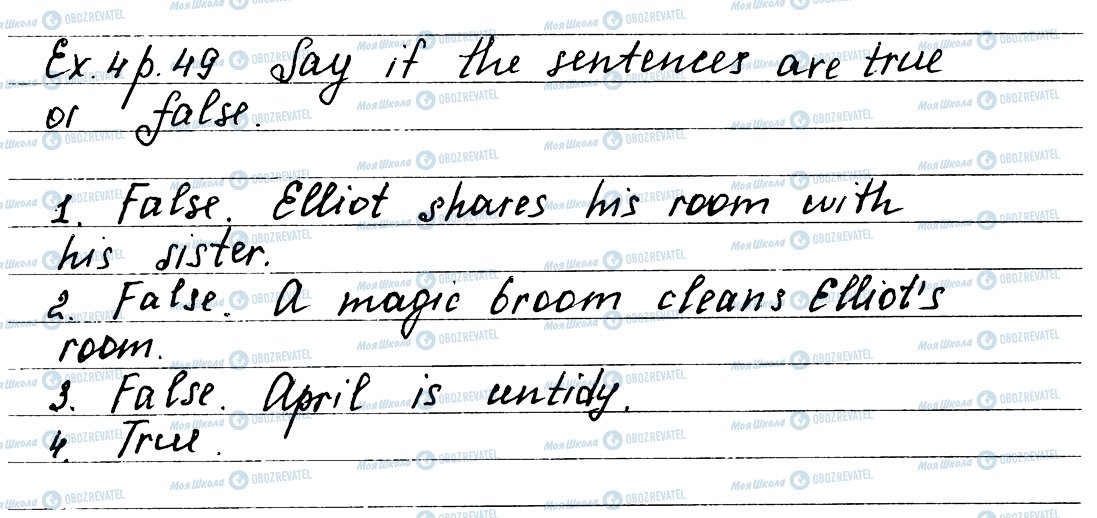 Ex. 4 p. 49 Say if the sentences are true
or false.
1. False. Elliot shares his room with
his sister.
2. False. A magic broom cleans Elliot's
room.
3. False. April is untidy.
4. True.